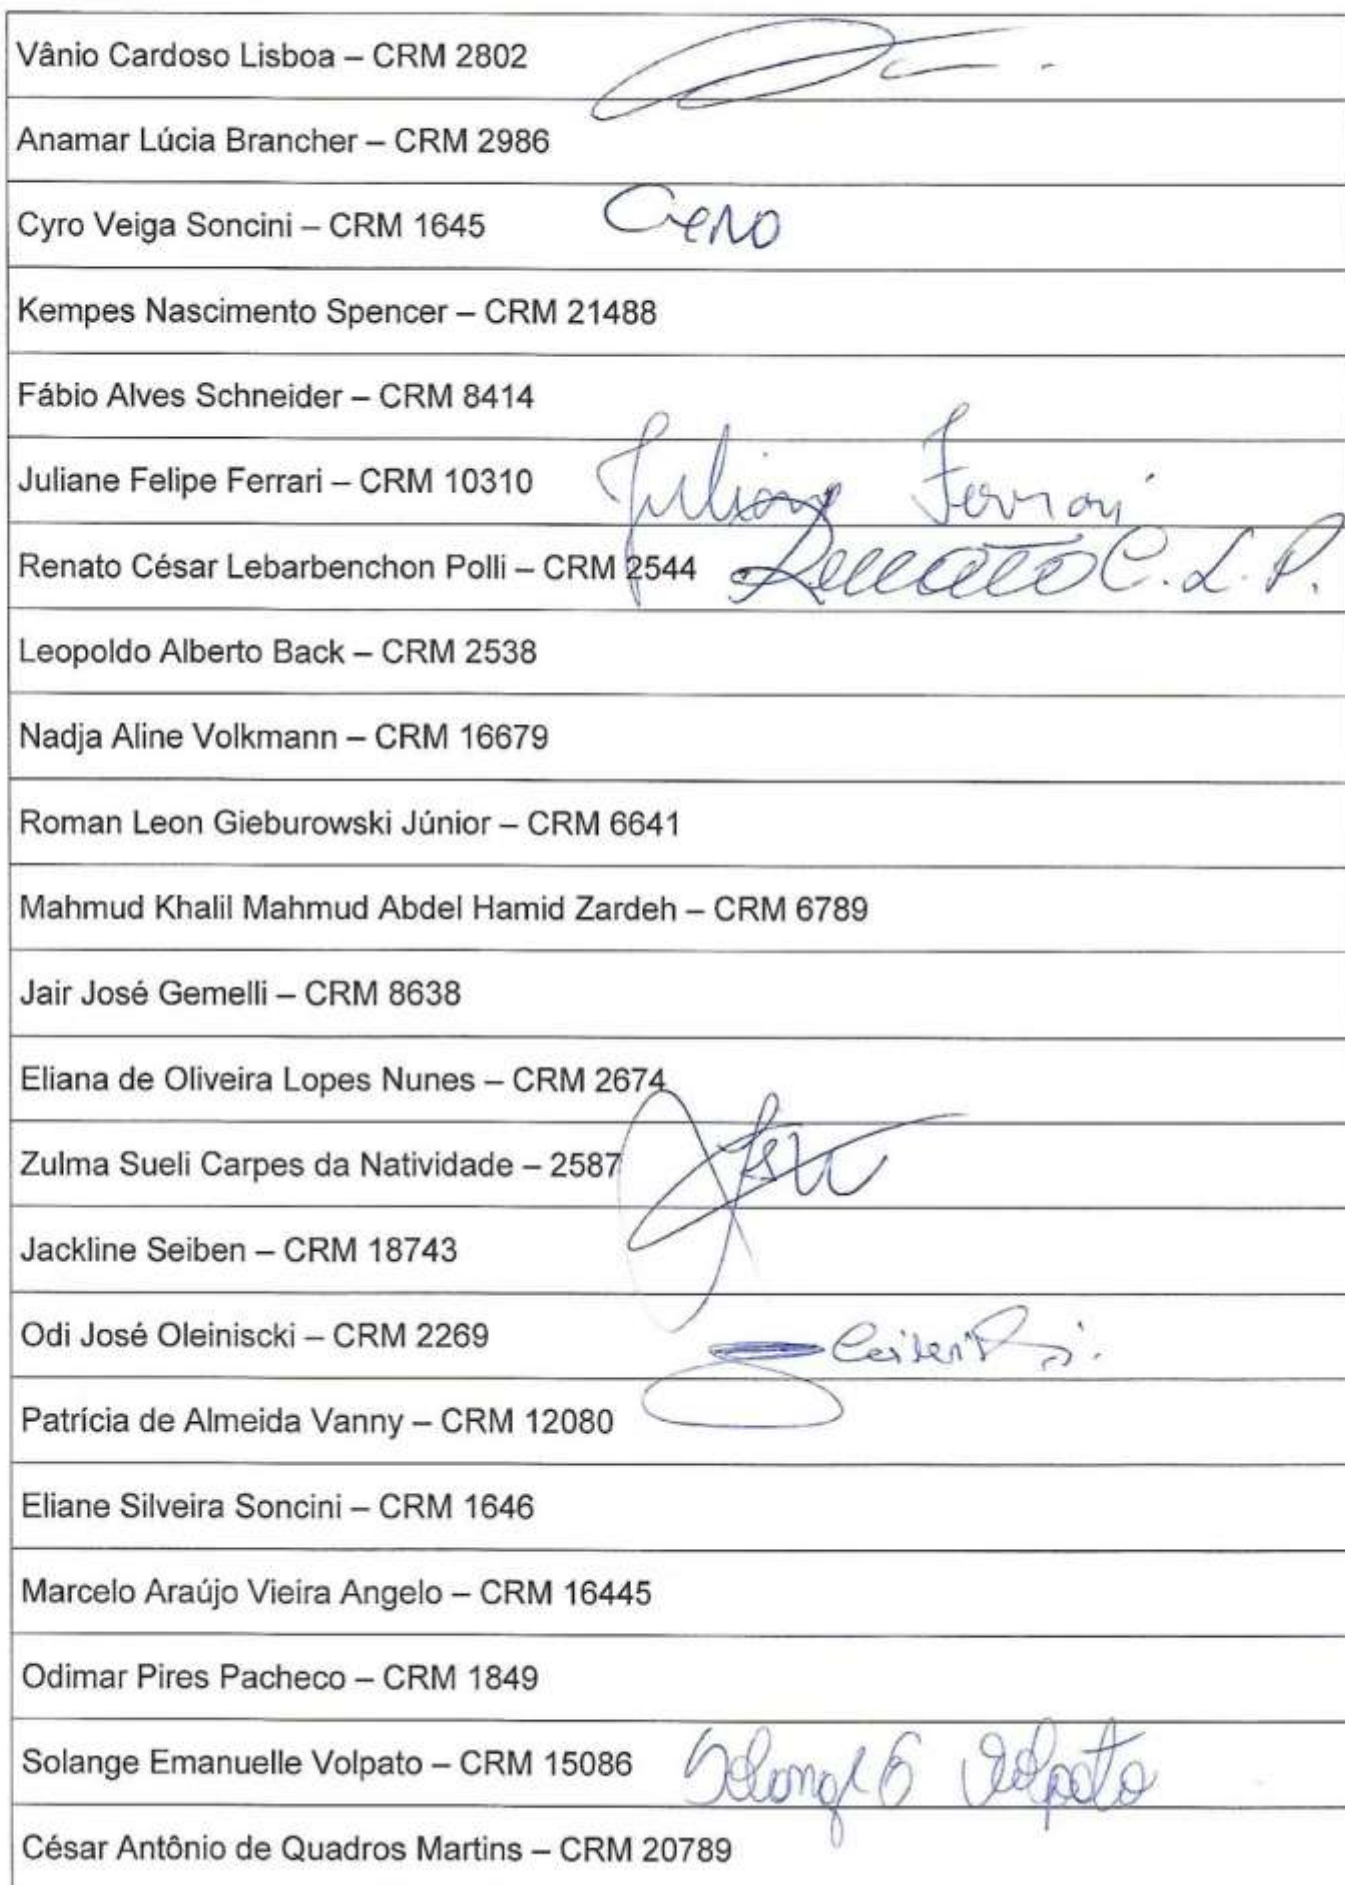 Vânio Cardoso Lisboa – CRM 2802
Anamar Lúcia Brancher – CRM 2986
Cyro Veiga Soncini – CRM 1645 Cyro
Kempes Nascimento Spencer – CRM 21488
Fábio Alves Schneider – CRM 8414
Juliane Felipe Ferrari – CRM 10310 Juliane Ferrari
Renato César Lebarbenchon Polli – CRM 2544 Renato C. L. P.
Leopoldo Alberto Back – CRM 2538
Nadja Aline Volkmann – CRM 16679
Roman Leon Gieburowski Júnior – CRM 6641
Mahmud Khalil Mahmud Abdel Hamid Zardeh – CRM 6789
Jair José Gemelli – CRM 8638
Eliana de Oliveira Lopes Nunes – CRM 2674
Zulma Sueli Carpes da Natividade – 2587
Jackline Seiben – CRM 18743
Odi José Oleiniscki – CRM 2269
Patrícia de Almeida Vanny – CRM 12080
Eliane Silveira Soncini – CRM 1646
Marcelo Araújo Vieira Angelo – CRM 16445
Odimar Pires Pacheco – CRM 1849
Solange Emanuelle Volpato – CRM 15086 Solange E Volpato
César Antônio de Quadros Martins – CRM 20789